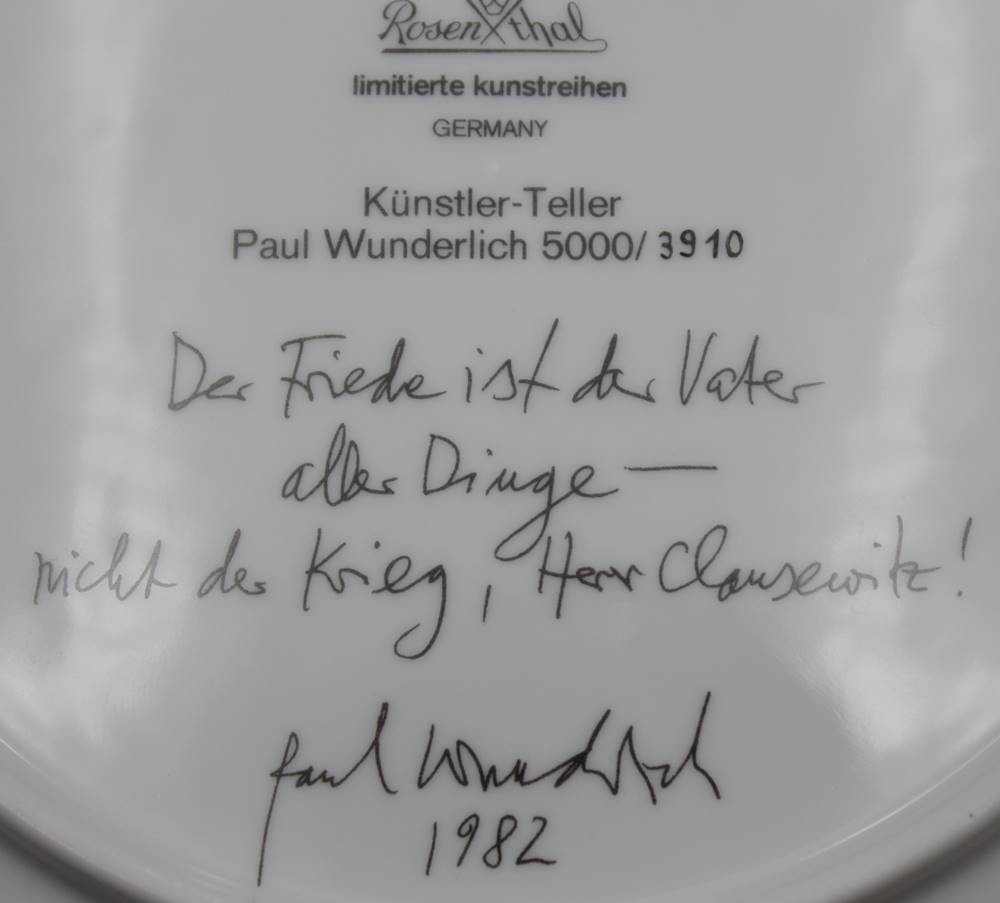 Rosenthal
limitierte kunstreihen
GERMANY
Künstler-Teller
Paul Wunderlich 5000/ 3910
Der Friede ist der Vater
aller Dinge —
nicht der Krieg, Herr Clausewitz!
Paul Wunderlich
1982